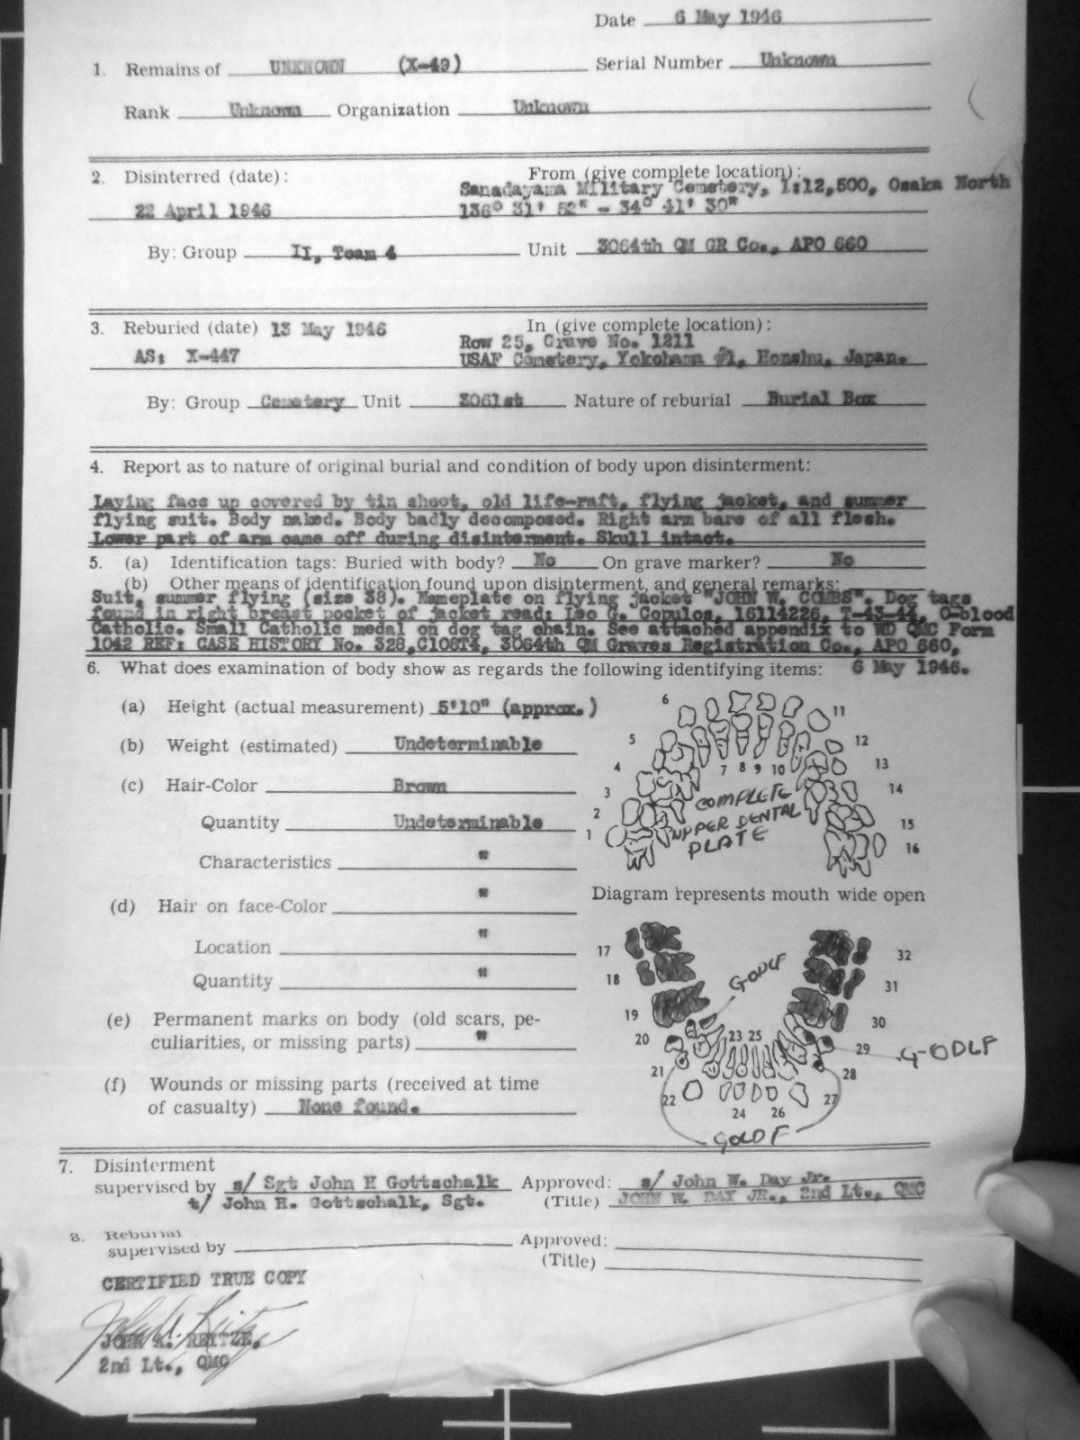 Date 6 May 1946
1. Remains of UNKNOWN (X-49) Serial Number Unknown
Rank Unknown Organization Unknown
2. Disinterred (date): From (give complete location):
Sanadayama Military Cemetery, 1:12,500, Osaka North
22 April 1946 136° 31' 52" - 34° 41' 30"
By: Group II, Team 4 Unit 3064th QM GR Co., APO 660
3. Reburied (date) 13 May 1946 In (give complete location):
Row 25, Grave No. 1211
AS: X-447 USAF Cemetery, Yokohama #1, Honshu, Japan.
By: Group Cemetery Unit 3061st Nature of reburial Burial Box
4. Report as to nature of original burial and condition of body upon disinterment:
Laying face up covered by tin sheet, old life-raft, flying jacket, and summer
flying suit. Body naked. Body badly decomposed. Right arm bare of all flesh.
Lower part of arm came off during disinterment. Skull intact.
5. (a) Identification tags: Buried with body? No On grave marker? No
(b) Other means of identification found upon disinterment, and general remarks:
Suit, summer flying (size 38). Nameplate on flying jacket "JOHN W. COMBS". Dog tags
found in right breast pocket of jacket read: Leo G. Copulos, 16114226, T-43-44, O-blood
Catholic. Small Catholic medal on dog tag chain. See attached appendix to WD QMC Form
1042 REF: CASE HISTORY No. 328, 3064th QM Graves Registration Co., APO 660,
6. What does examination of body show as regards the following identifying items: 6 May 1946.
(a) Height (actual measurement) 5'10" (approx.)
(b) Weight (estimated) Undeterminable
(c) Hair-Color Brown
Quantity Undeterminable
Characteristics "
(d) Hair on face-Color "
Location "
Quantity "
(e) Permanent marks on body (old scars, pe-
culiarities, or missing parts) "
(f) Wounds or missing parts (received at time
of casualty) None found.
6 11
5 12
4 7 8 9 10 13
3 14
2 COMPLETE 15
1 UPPER DENTAL 16
PLATE
Diagram represents mouth wide open
17 32
18 GODLF 31
19 30
20 23 25 29 G-ODLF
21 28
22 27
24 26
GOLD F
7. Disinterment
supervised by s/ Sgt John H Gottschalk Approved: s/ John W. Day Jr.
t/ John H. Gottschalk, Sgt. (Title) JOHN W. DAY JR., 2nd Lt., QMC
8. Reburial
supervised by Approved:
(Title)
CERTIFIED TRUE COPY
2nd Lt., QMC